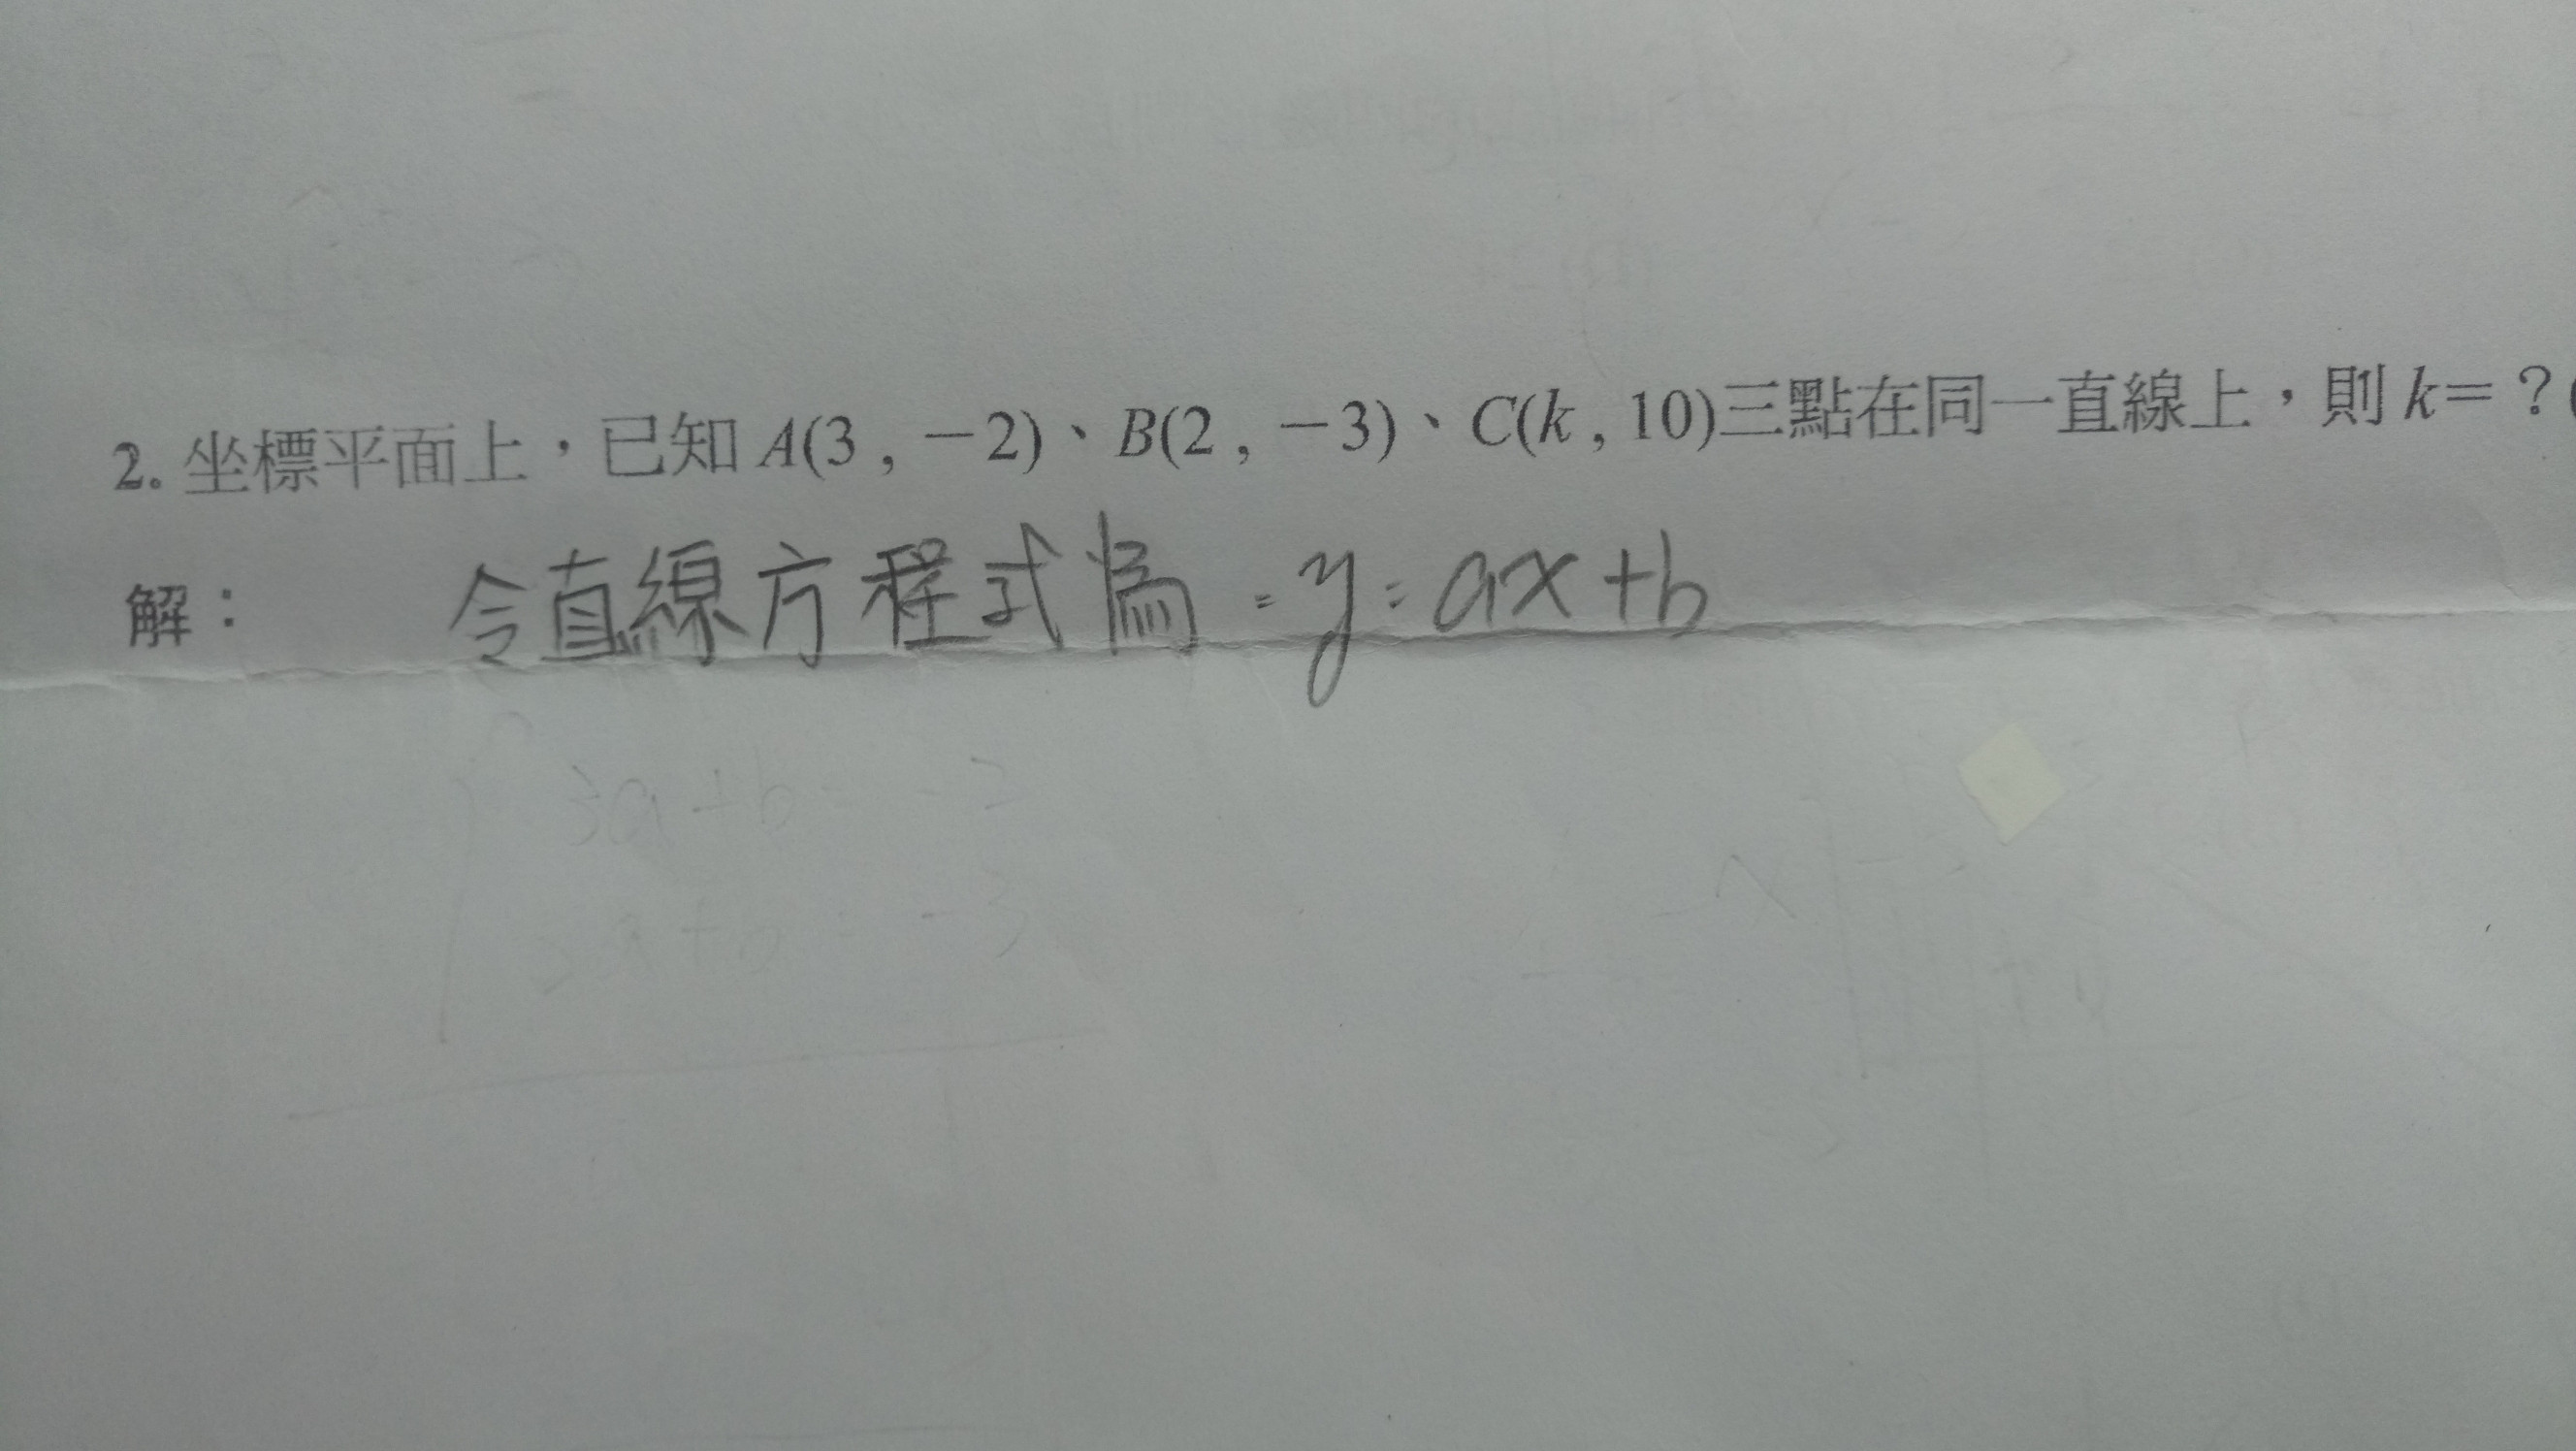 2. 坐標平面上，已知 A(3 , －2)、B(2 , －3)、C(k , 10)三點在同一直線上，則 k＝？(
解： 令直線方程式為：y = ax + b
3a + b = -2
-3